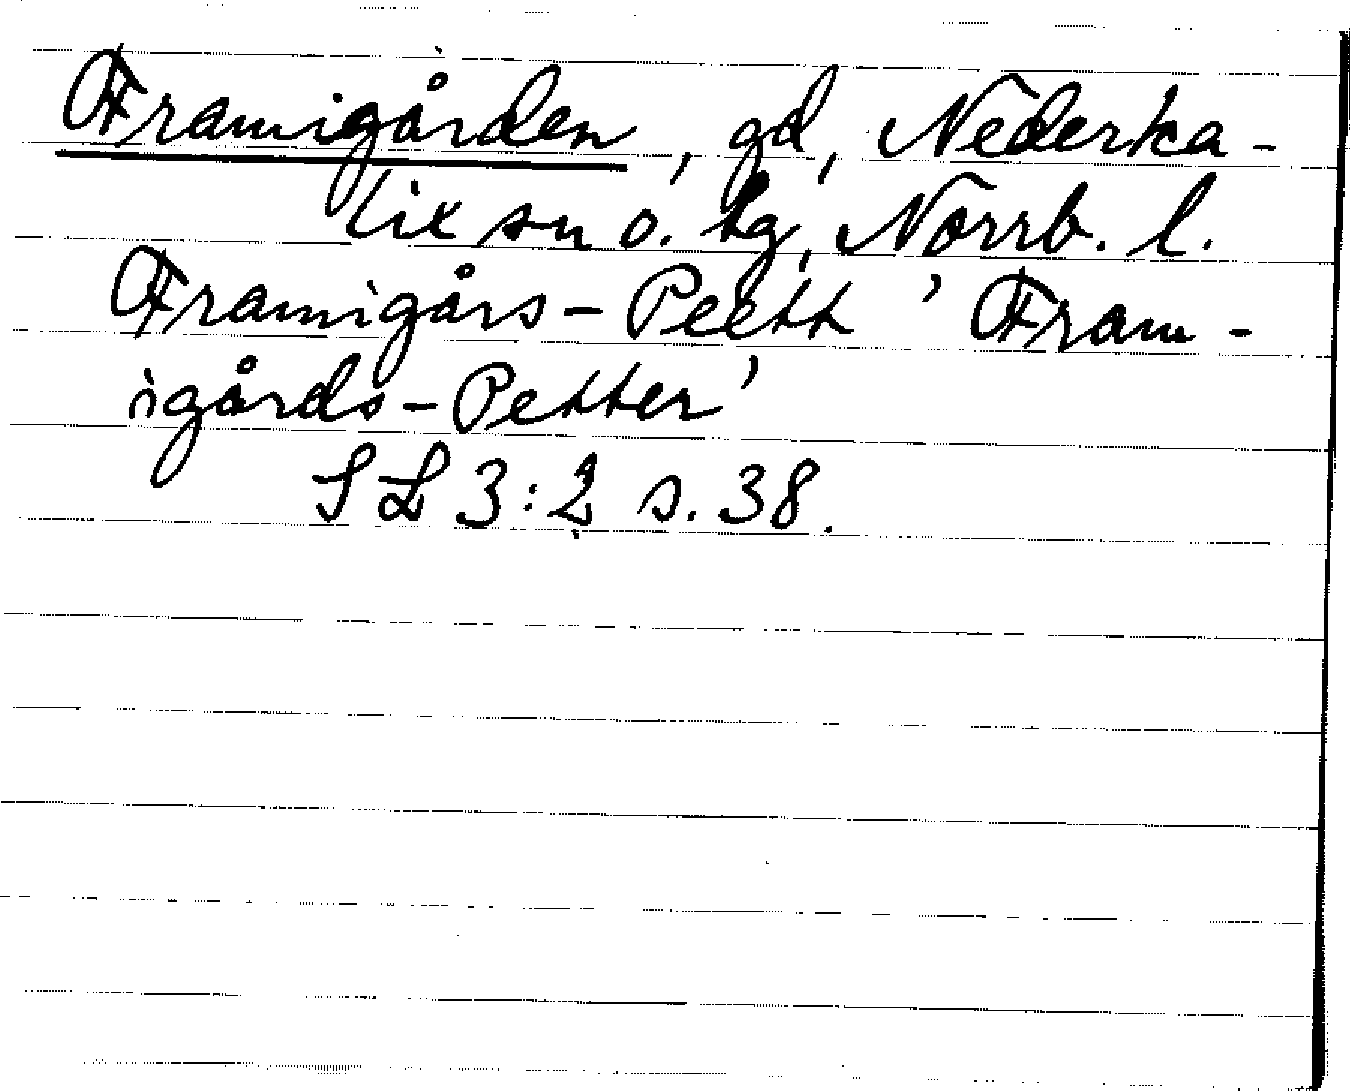 Framigården, gd, Nederka-
lix sn o. tg, Norrb. l.
Framigårs-Peett 'Fram-
igårds-Petter'
SL 3:2 s. 38.